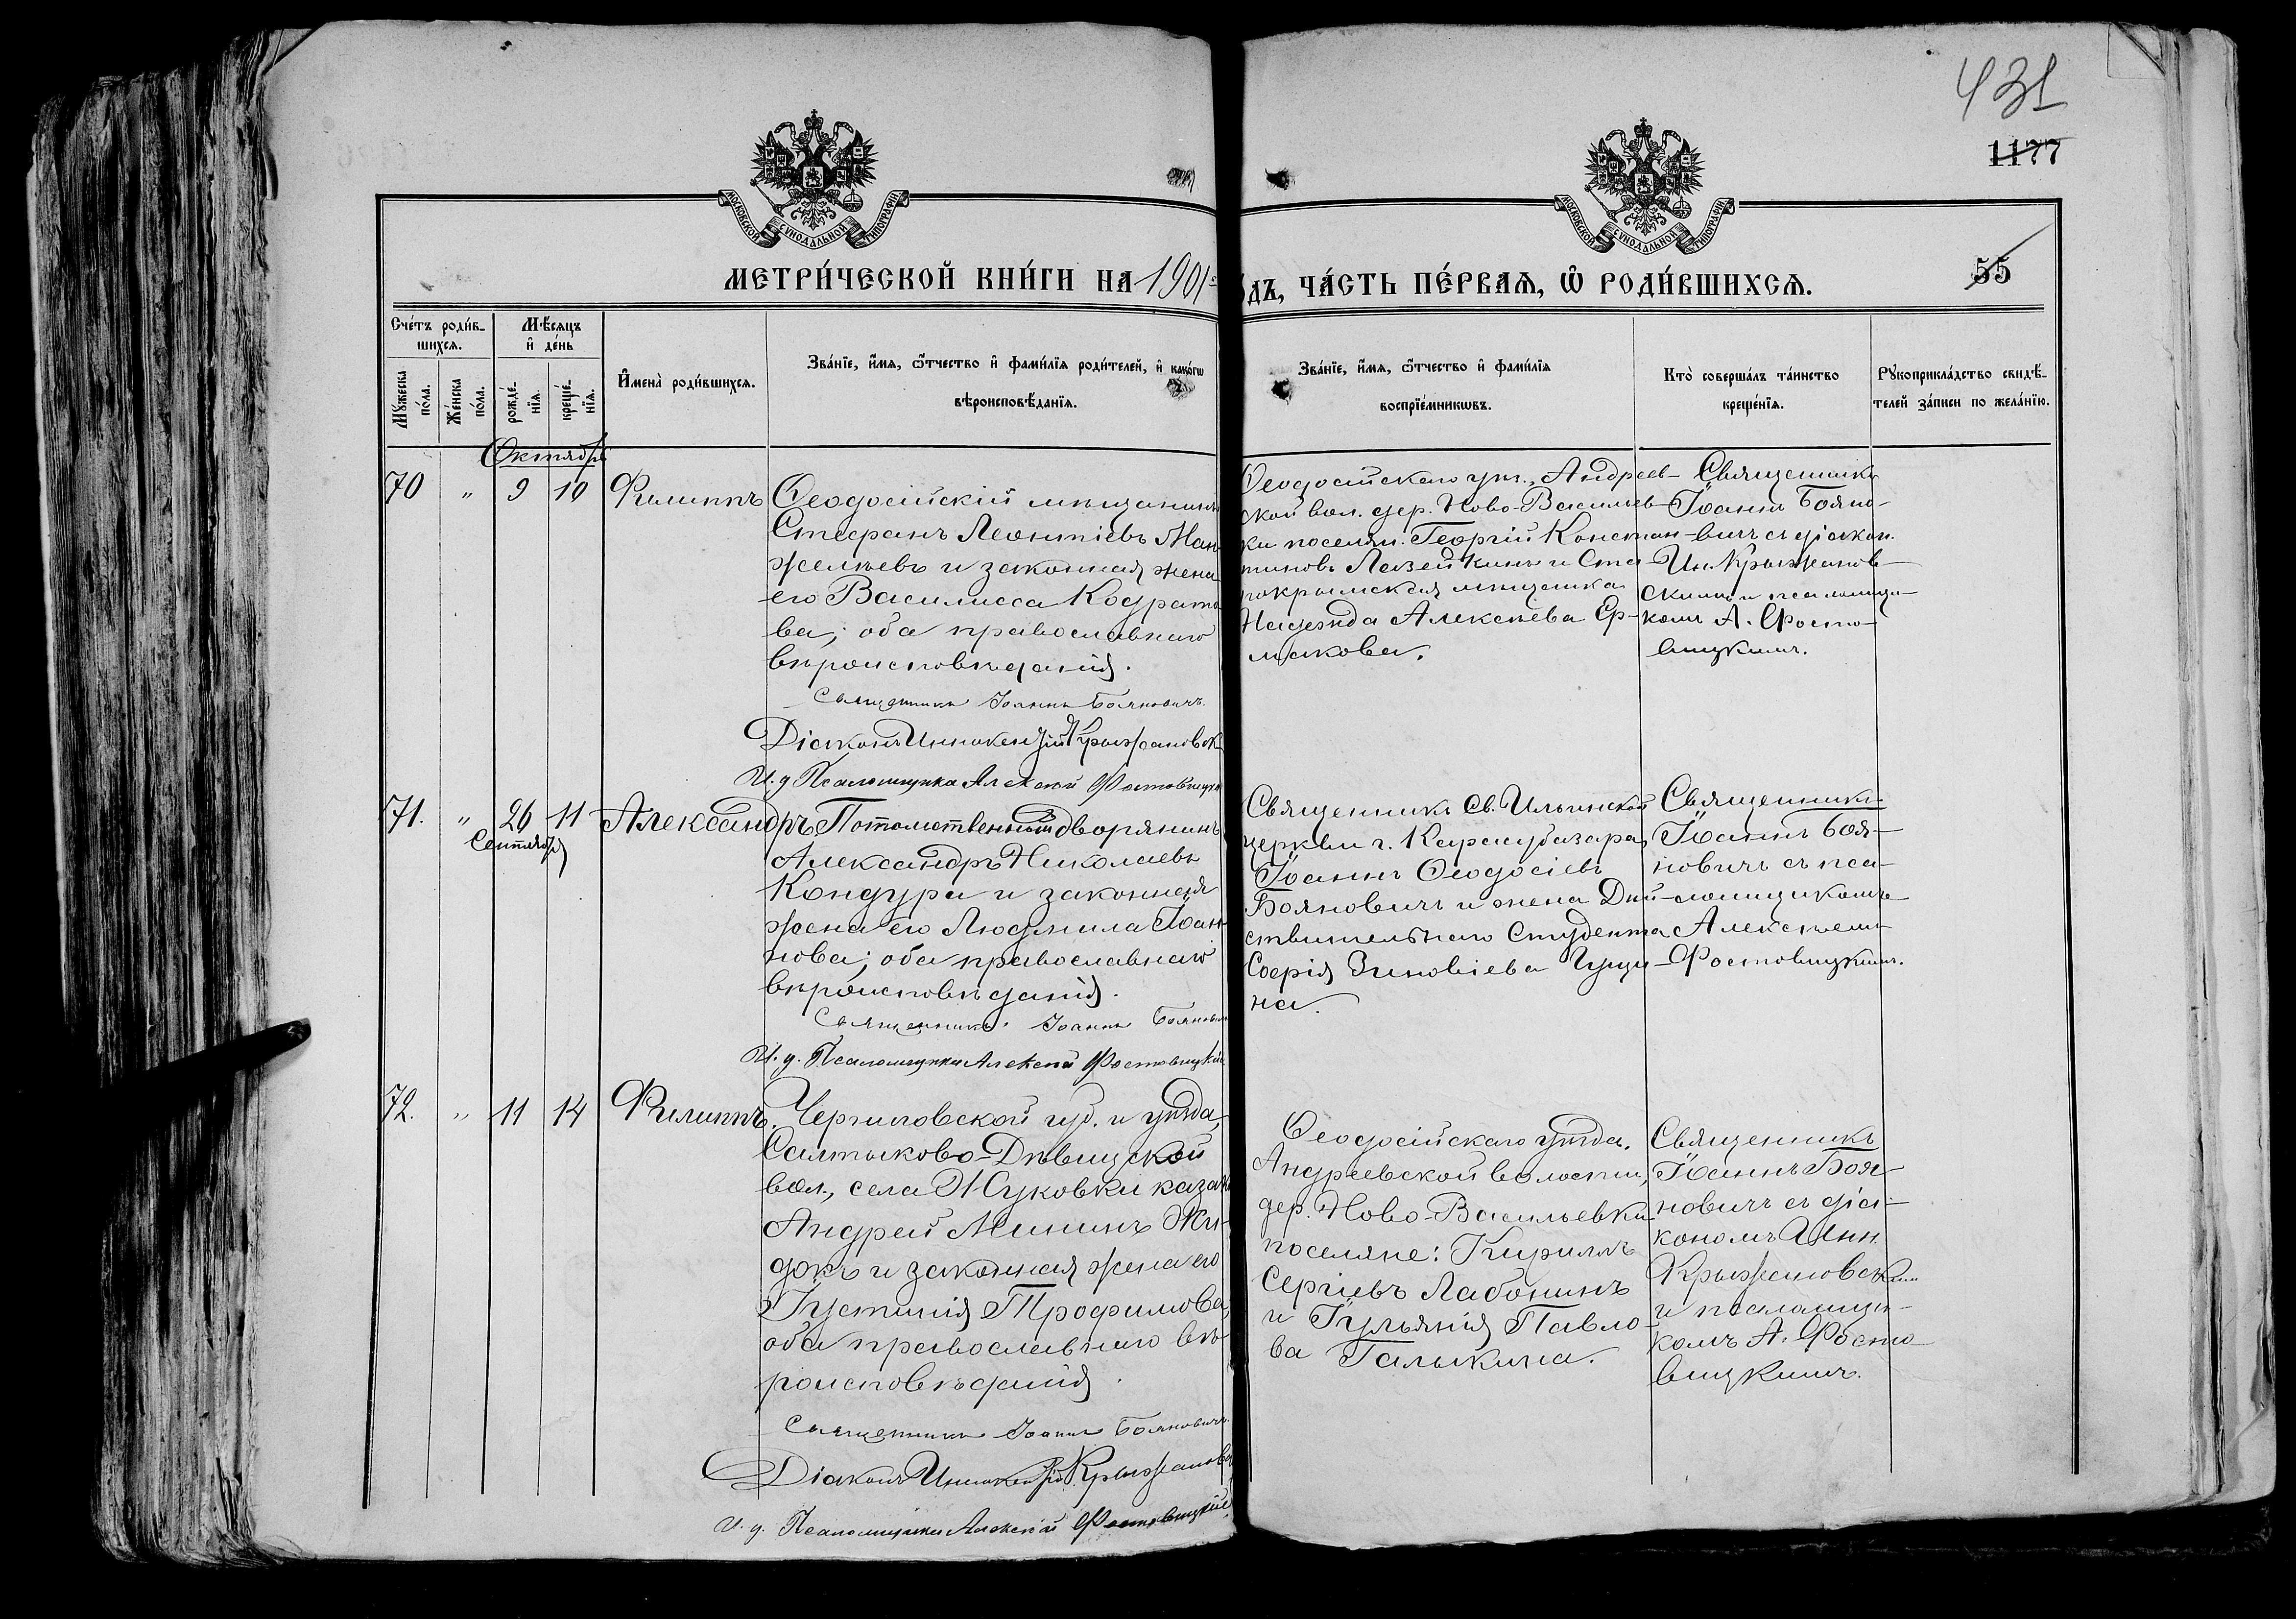 431
1177
МОСКОВСКОЙ СѴНОДАЛЬНОЙ ТИПОГРАФІИ
МОСКОВСКОЙ СѴНОДАЛЬНОЙ ТИПОГРАФІИ
МЕТРИ́ЧЕСКОЙ КНИ́ГИ НА 1901
ДЪ, ЧА́СТЬ ПЕ́РВАЯ, Ѿ РОДИ́ВШИХСЯ.
55
Сче́тъ роди́в-
шихся.
Мѣ́сяцъ
и҆ де́нь
Мꙋ́жеска по́ла.
Же́нска по́ла.
рожде́-нїя.
креще́-нїя.
И҆мена̀ роди́вшихся.
Зва́нїе, и҆́мя, ѻ҆́тчество и҆ фами́лїя роди́телей, и҆ како́гѡ
вѣроисповѣ́данїя.
Зва́нїе, и҆́мя, ѻ҆́тчество и҆ фами́лїя
воспрїе́мникѡвъ.
Кто̀ соверша́лъ та́инство
креще́нїя.
Рꙋкоприкла́дство свидѣ́-
телей за́писи по жела́нїю.
Октябрь
70 " 9 10 Филиппъ
Ѳеодосійскій мѣщанинъ
Стефанъ Леонтіевъ Ман-
желѣевъ и законная жена
его Василисса Кодрато
ва; оба православнаго
вѣроисповѣданія.
Священникъ Іоаннъ Бояновичъ.
Діаконъ Иннокентій Крыжановск
И. д. Псаломщика Алексій Фостовицкій
Ѳеодосійскаго уѣз., Андреев-
ской вол. дер. Ново-Васильев-
ки поселян. Георгій Констан-
тиновъ Лазейкинъ и Ста-
рокрымская мѣщанка
Надежда Алексѣева Ер-
макова.
Священникъ
Іоаннъ Бояно-
вичъ съ діакон.
Ин. Крыжанов-
скимъ и псаломщи-
комъ А. Фосто-
вицкимъ.
71. " 26 11 Александръ
Сентября
Потомственный дворянинъ
Александръ Николаевъ
Кондура и законная
жена его Людмила Іоан-
нова; оба православнаго
вѣроисповѣданія.
Священникъ Іоаннъ Бояновичъ
И. д. Псаломщика Алексій Фостовицкій
Священникъ Св. Ильинской
церкви г. Карасубазара
Іоаннъ Ѳеодосіевъ
Бояновичъ и жена Дѣй-
ствительнаго Студента
Софія Зиновіева Гущи-
на.
Священникъ
Іоаннъ Боя-
новичъ съ пса-
ломщикомъ
Алексѣемъ
Фостовицкимъ.
72. " 11 14 Филиппъ.
Черниговской губ. и уѣзда,
Салтыково-Дѣвицской
вол., села Жуковки казакъ
Андрей Мининъ Жи-
докъ и законная жена его
Іустинія Трофимова,
оба православнаго вѣ-
роисповѣданія.
Священникъ Іоаннъ Бояновичъ.
Діаконъ Иннокентій Крыжановс
И. д. Псаломщика Алексій Фостовицкій.
Ѳеодосійскаго уѣзда,
Андреевской волости,
дер. Ново-Васильевки
поселяне: Кириллъ
Сергіевъ Лабонинъ
и Іульянія Павло-
ва Галыкина.
Священникъ
Іоаннъ Боя-
новичъ съ діа-
кономъ Инн.
Крыжановским
и псаломщи-
комъ А. Фосто-
вицкимъ.